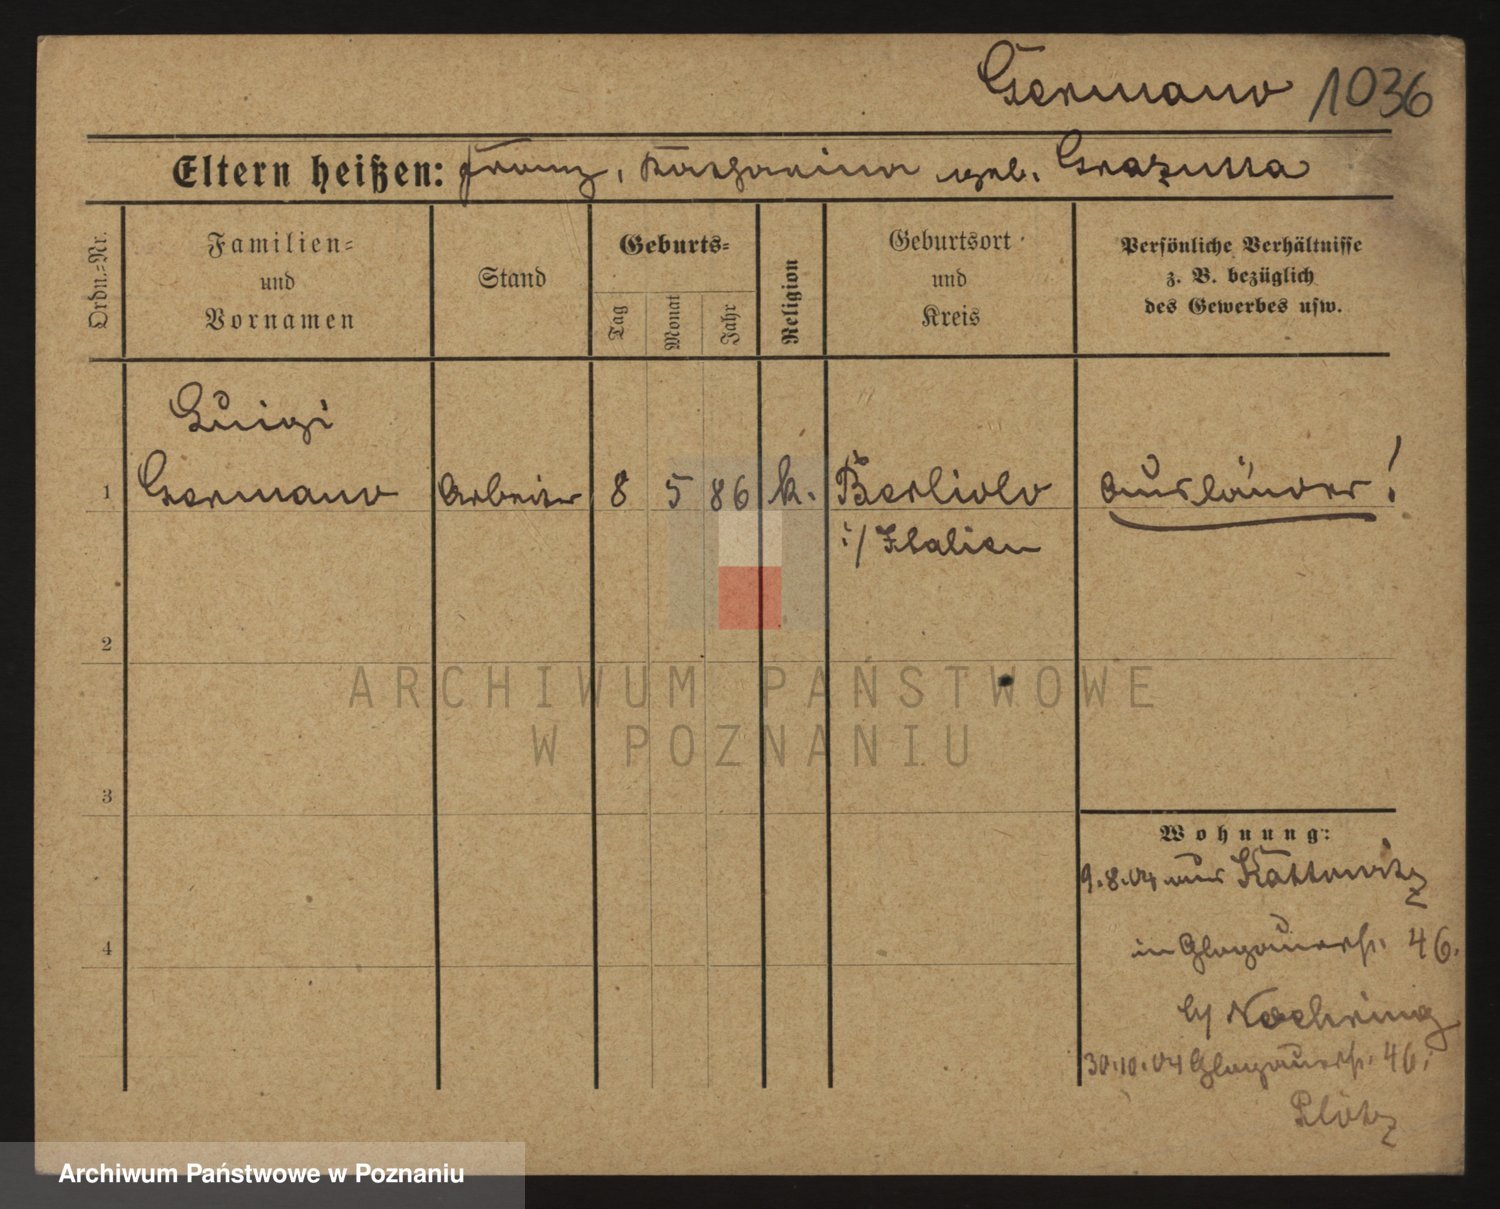 Germano 1036
Eltern heißen: Franz, Katharina geb. Grazussa
Ordn.-Nr.
Familien-
und
Vornamen
Stand
Geburts-
Tag
Monat
Jahr
Religion
Geburtsort
und
Kreis
Persönliche Verhältnisse
z. B. bezüglich
des Gewerbes usw.
Luigi
1 Germano Arbeiter 8 5 86 k. Berliolo Ausländer!
i/ Italien
2
ARCHIWUM PAŃSTWOWE
W POZNANIU
3
Wohnung:
9.8.04 aus Kattowitz
4
in Glogauerstr. 46.
b/ Noehring
30.10.04 Glogauerstr. 46.
Plötz
Archiwum Państwowe w Poznaniu